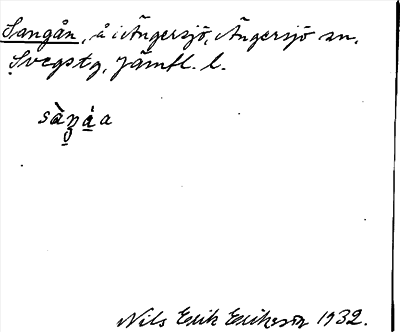 Sangån, å i Ängersjö, Ängersjö sn,
Svegs tg, Jämtl. l.
Nils Erik Eriksson 1932.